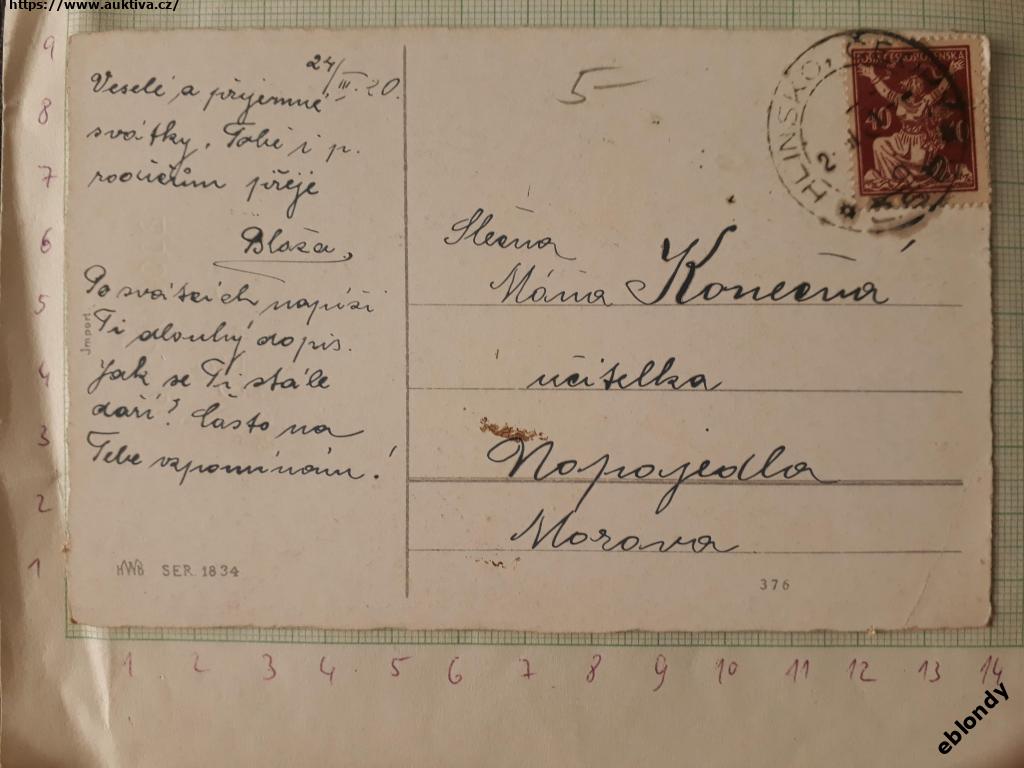 https://www.auktiva.cz/
24/III. 20.
Veselé a příjemné
svátky, Tobě i p.
rodičům přeje
Blaža,
Po svátcích napíši
Ti dlouhý dopis.
Jak se Ti stále
daří? Často na
Tebe vzpomínám!
Import.
HWB SER. 1834
5-
HLINSKO
Slečna
Máňa Konečná
učitelka
Napajedla
Morava
376
9
8
7
6
5
4
3
2
1
1 2 3 4 5 6 7 8 9 10 11 12 13 14
eblondy